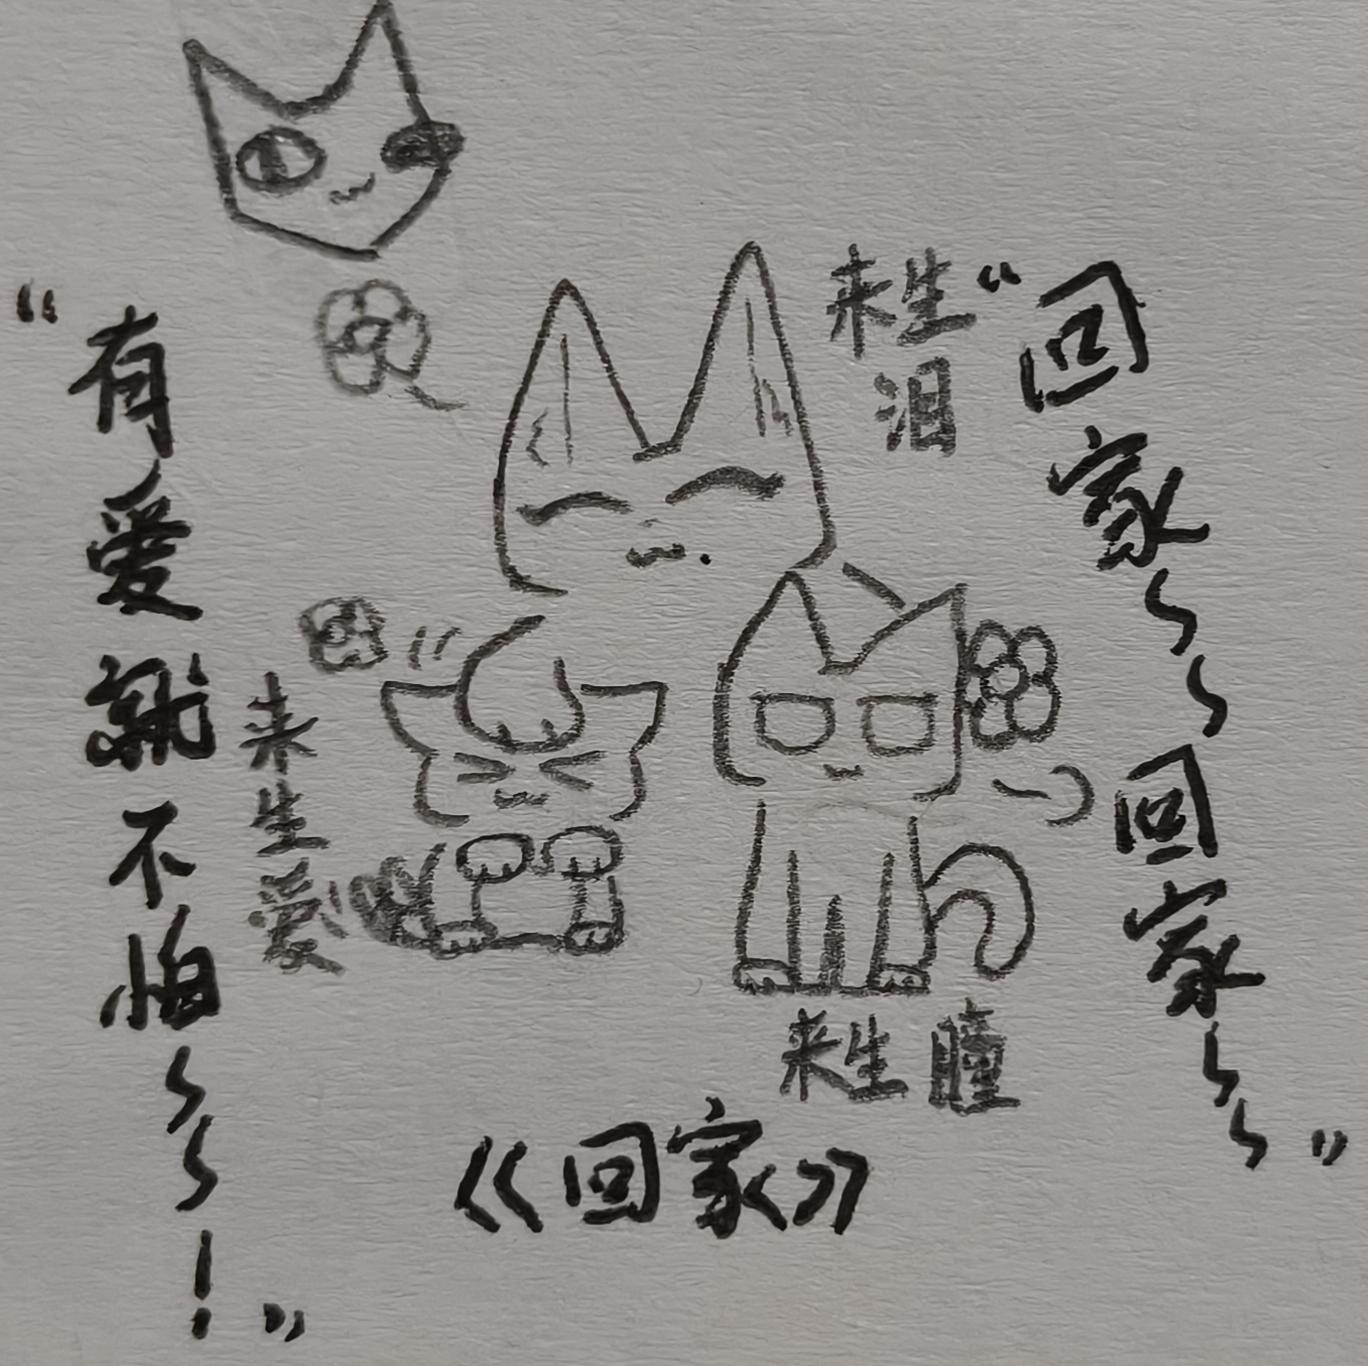 “有爱就不怕~~!”
来生泪
“回家~~回家~~”
来生爱
来生瞳
《回家》